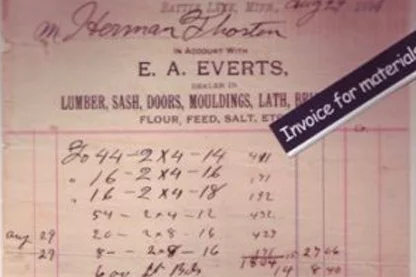 BATTLE LAKE, MINN., Aug 29
M Herman Thorsten
IN ACCOUNT WITH
E. A. EVERTS,
DEALER IN
LUMBER, SASH, DOORS, MOULDINGS, LATH,
FLOUR, FEED, SALT, ETC
Invoice for materials
To 44-2x4-14 411
" 16-2x4-16 171
" 16-2x4-18 192
54-2x4-12 432
Aug 29 20-2x8-16 427
" 29 8-2x8-16 27 06
14 8 40